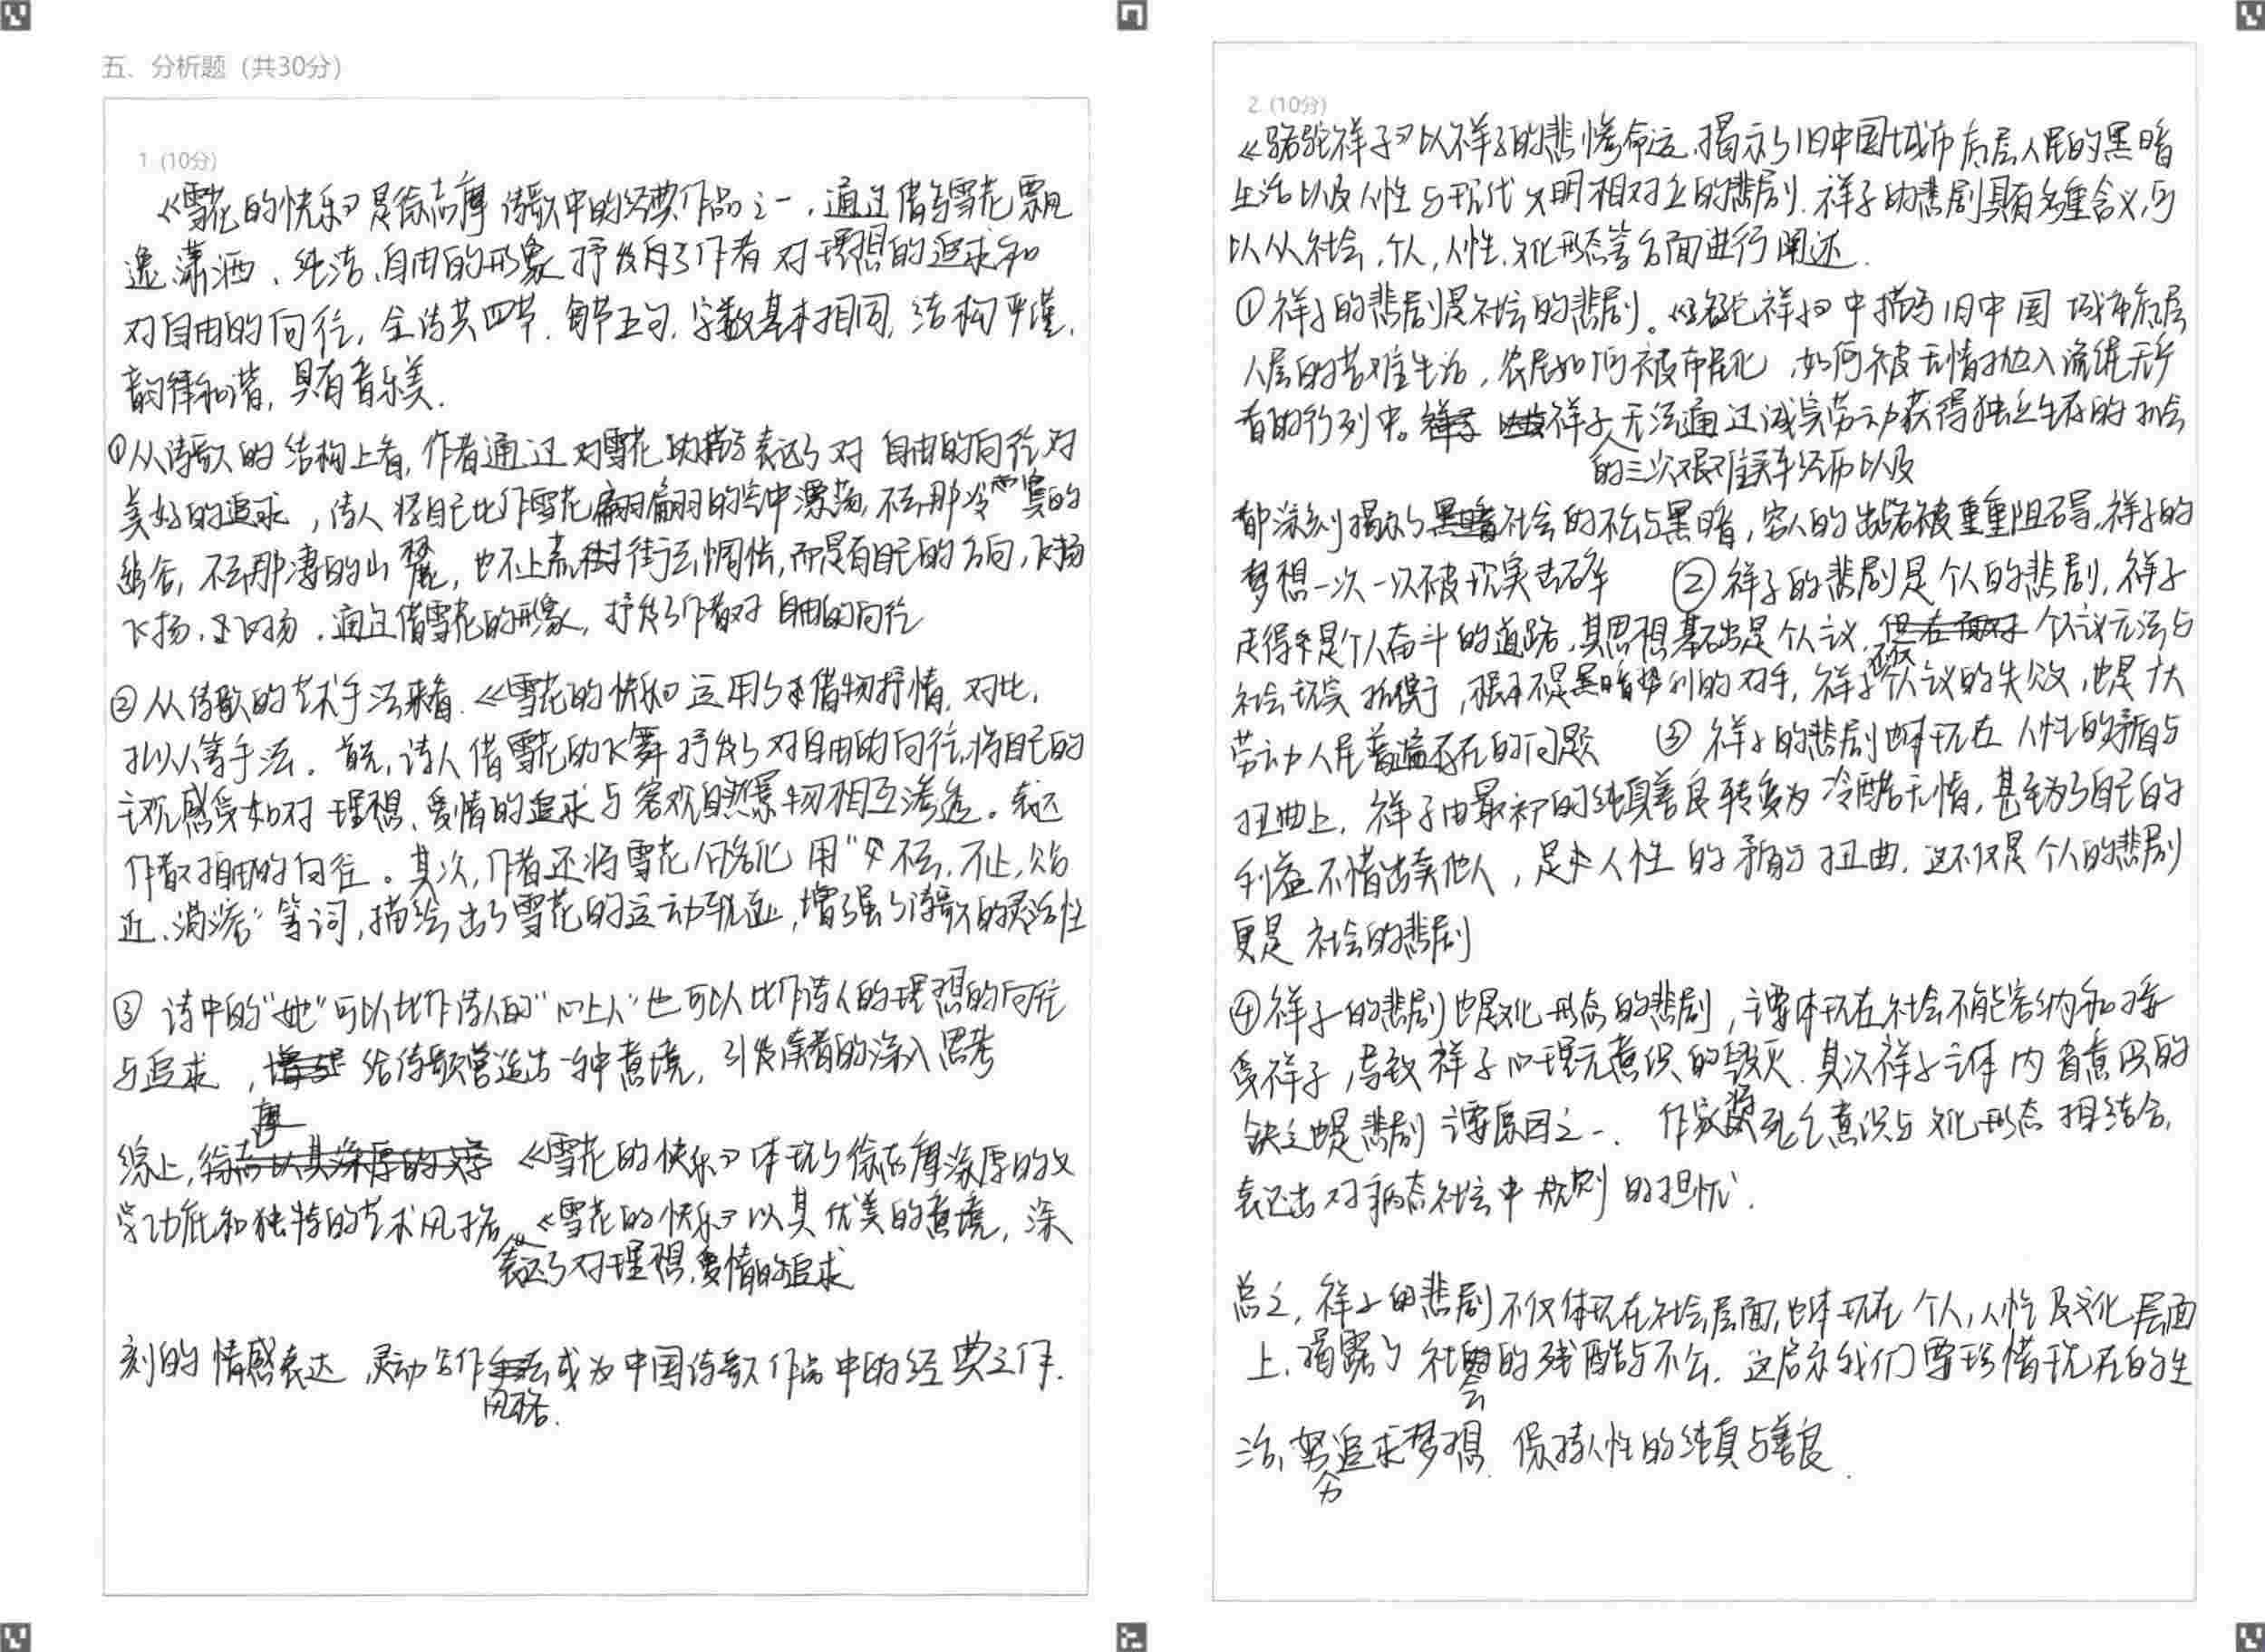 五、分析题（共30分）
1. (10分)
《雪花的快乐》是徐志摩诗歌中的经典作品之一，通过借写雪花飘
逸、潇洒、纯洁、自由的形象，抒发了作者对理想的追求和
对自由的向往，全诗共四节，每节五句，字数基本相同，结构严谨，
韵律和谐，具有音乐美.
①从诗歌的结构上看，作者通过对雪花的描写表达了对自由的向往,对
美好的追求，诗人将自己比作雪花翩翩的空中漂荡,不去那冷寞的
幽谷，不去那凄的山麓，也不上荒街去惆怅,而是有自己的方向，飞扬
飞扬，飞扬．通过借雪花的形象，抒发了作者对自由的向往
②从诗歌的艺术手法来看．《雪花的快乐》运用了借物抒情，对比，
拟人等手法．首先，诗人借雪花的飞舞抒发了对自由的向往,将自己的
主观感受和对理想、爱情的追求与客观自然景物相互渗透。表达
作者对自由的向往。其次，作者还将雪花人格化 用“不去，不止，贴
近、消溶”等词，描绘出了雪花的运动轨迹，增强了诗歌的灵活性
③ 诗中的“她”可以比作诗人的“心上人”也可以比作诗人的理想的向往
与追求，给诗歌营造出一种意境，引发读者的深入思考
综上，《雪花的快乐》体现了徐志摩深厚的文
学功底和独特的艺术风格，《雪花的快乐》以其优美的意境，深
表达了对理想,爱情的追求
刻的情感表达，灵动写作成为中国诗歌作品中的经典之作．
风格．
2. (10分)
《骆驼祥子》以祥子的悲惨命运，揭示了旧中国城市底层人民的黑暗
生活以及人性与现代文明相对立的悲剧．祥子的悲剧具有多重含义,可
以从社会，个人，人性，文化形态等方面进行阐述．
①祥子的悲剧是社会的悲剧。《骆驼祥子》中描写旧中国城市底层
人民的苦难生活，农民如何被市民化，如何被无情抛入流氓无产
者的行列中。祥子无法通过诚实劳动获得独立生存的机会
的三次艰难买车经历以及
都深刻揭示了社会的不公与黑暗，穷人的出路被重重阻碍,祥子的
梦想一次一次被现实击碎 ②祥子的悲剧是个人的悲剧，祥子
走得是个人奋斗的道路，其思想基础是个人议，个人议无法与
社会现实抗衡，根本不是黑暗势利的对手，祥子个人议的失败，也是广大
劳动人民普遍存在的问题 ③ 祥子的悲剧也体现在人性的矛盾与
扭曲上，祥子由最初的纯真善良转变为冷酷无情，甚至为了自己的
利益不惜出卖他人，是人性的矛盾与扭曲，这不仅是个人的悲剧
更是社会的悲剧
④祥子的悲剧也是文化形态的悲剧，主要体现在社会不能容纳和接
受祥子，导致祥子心理元意识的毁灭．其次祥子主体内省意识的
缺乏也是悲剧主要原因之一．作家将死亡意识与文化形态相结合，
表达出对病态社会中规则的担忧．
总之，祥子的悲剧不仅体现在社会层面,也体现在个人，人性及文化层面
上，揭露了社会的残酷与不公．这启示我们要珍惜现在的生
活，努力追求梦想，保持人性的纯真与善良．